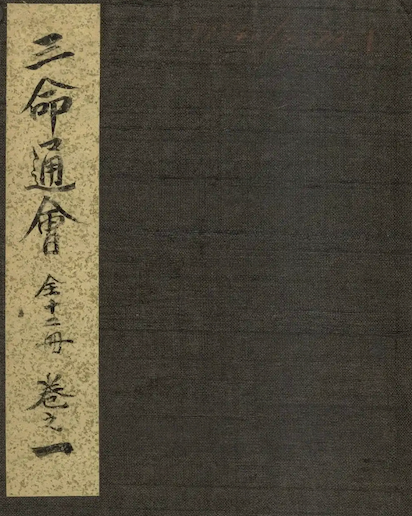 三命通會 全十二冊 卷之一